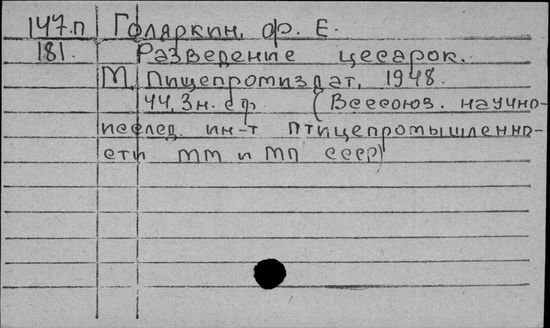 147.п Голяркин, ф. Е.
181. Разведение цесарок.
М, Пищепромиздат, 1948.
44, 3 н. с ф. (Всесоюз. научно-
исслед. ин-т птицепромышленно-
сти ММ и МП СССР)